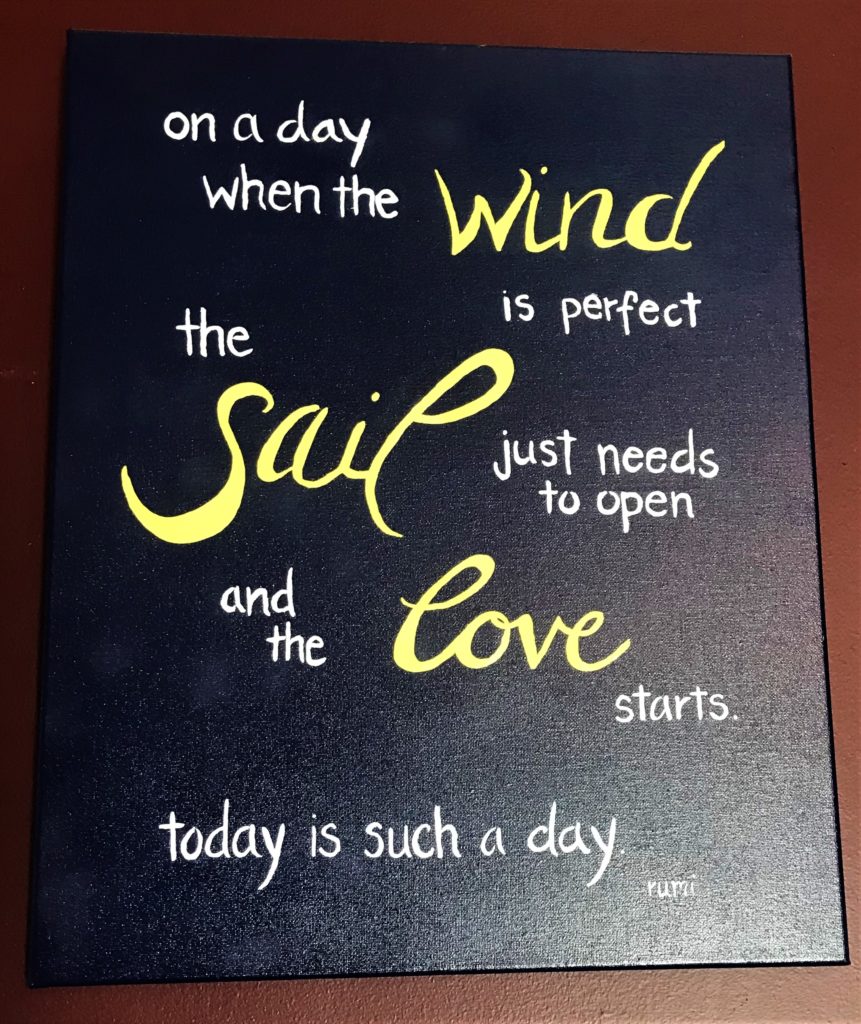 on a day
when the wind
is perfect
the
sail just needs
to open
and
the love
starts.
today is such a day.
rumi